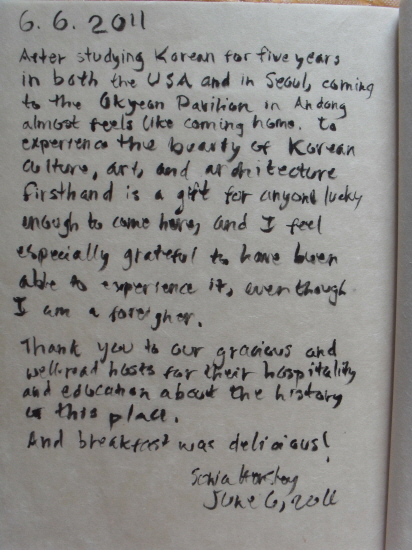 6. 6. 2011
After studying Korean for five years
in both the USA and in Seoul, coming
to the Okyeon Pavilion in Andong
almost feels like coming home. To
experience the beauty of Korean
culture, art, and architecture
firsthand is a gift for anyone lucky
enough to come here, and I feel
especially grateful to have been
able to experience it, even though
I am a foreigner.
Thank you to our gracious and
well-read hosts for their hospitality
and education about the history
of this place.
And breakfast was delicious!
Sonia
June 6, 2011